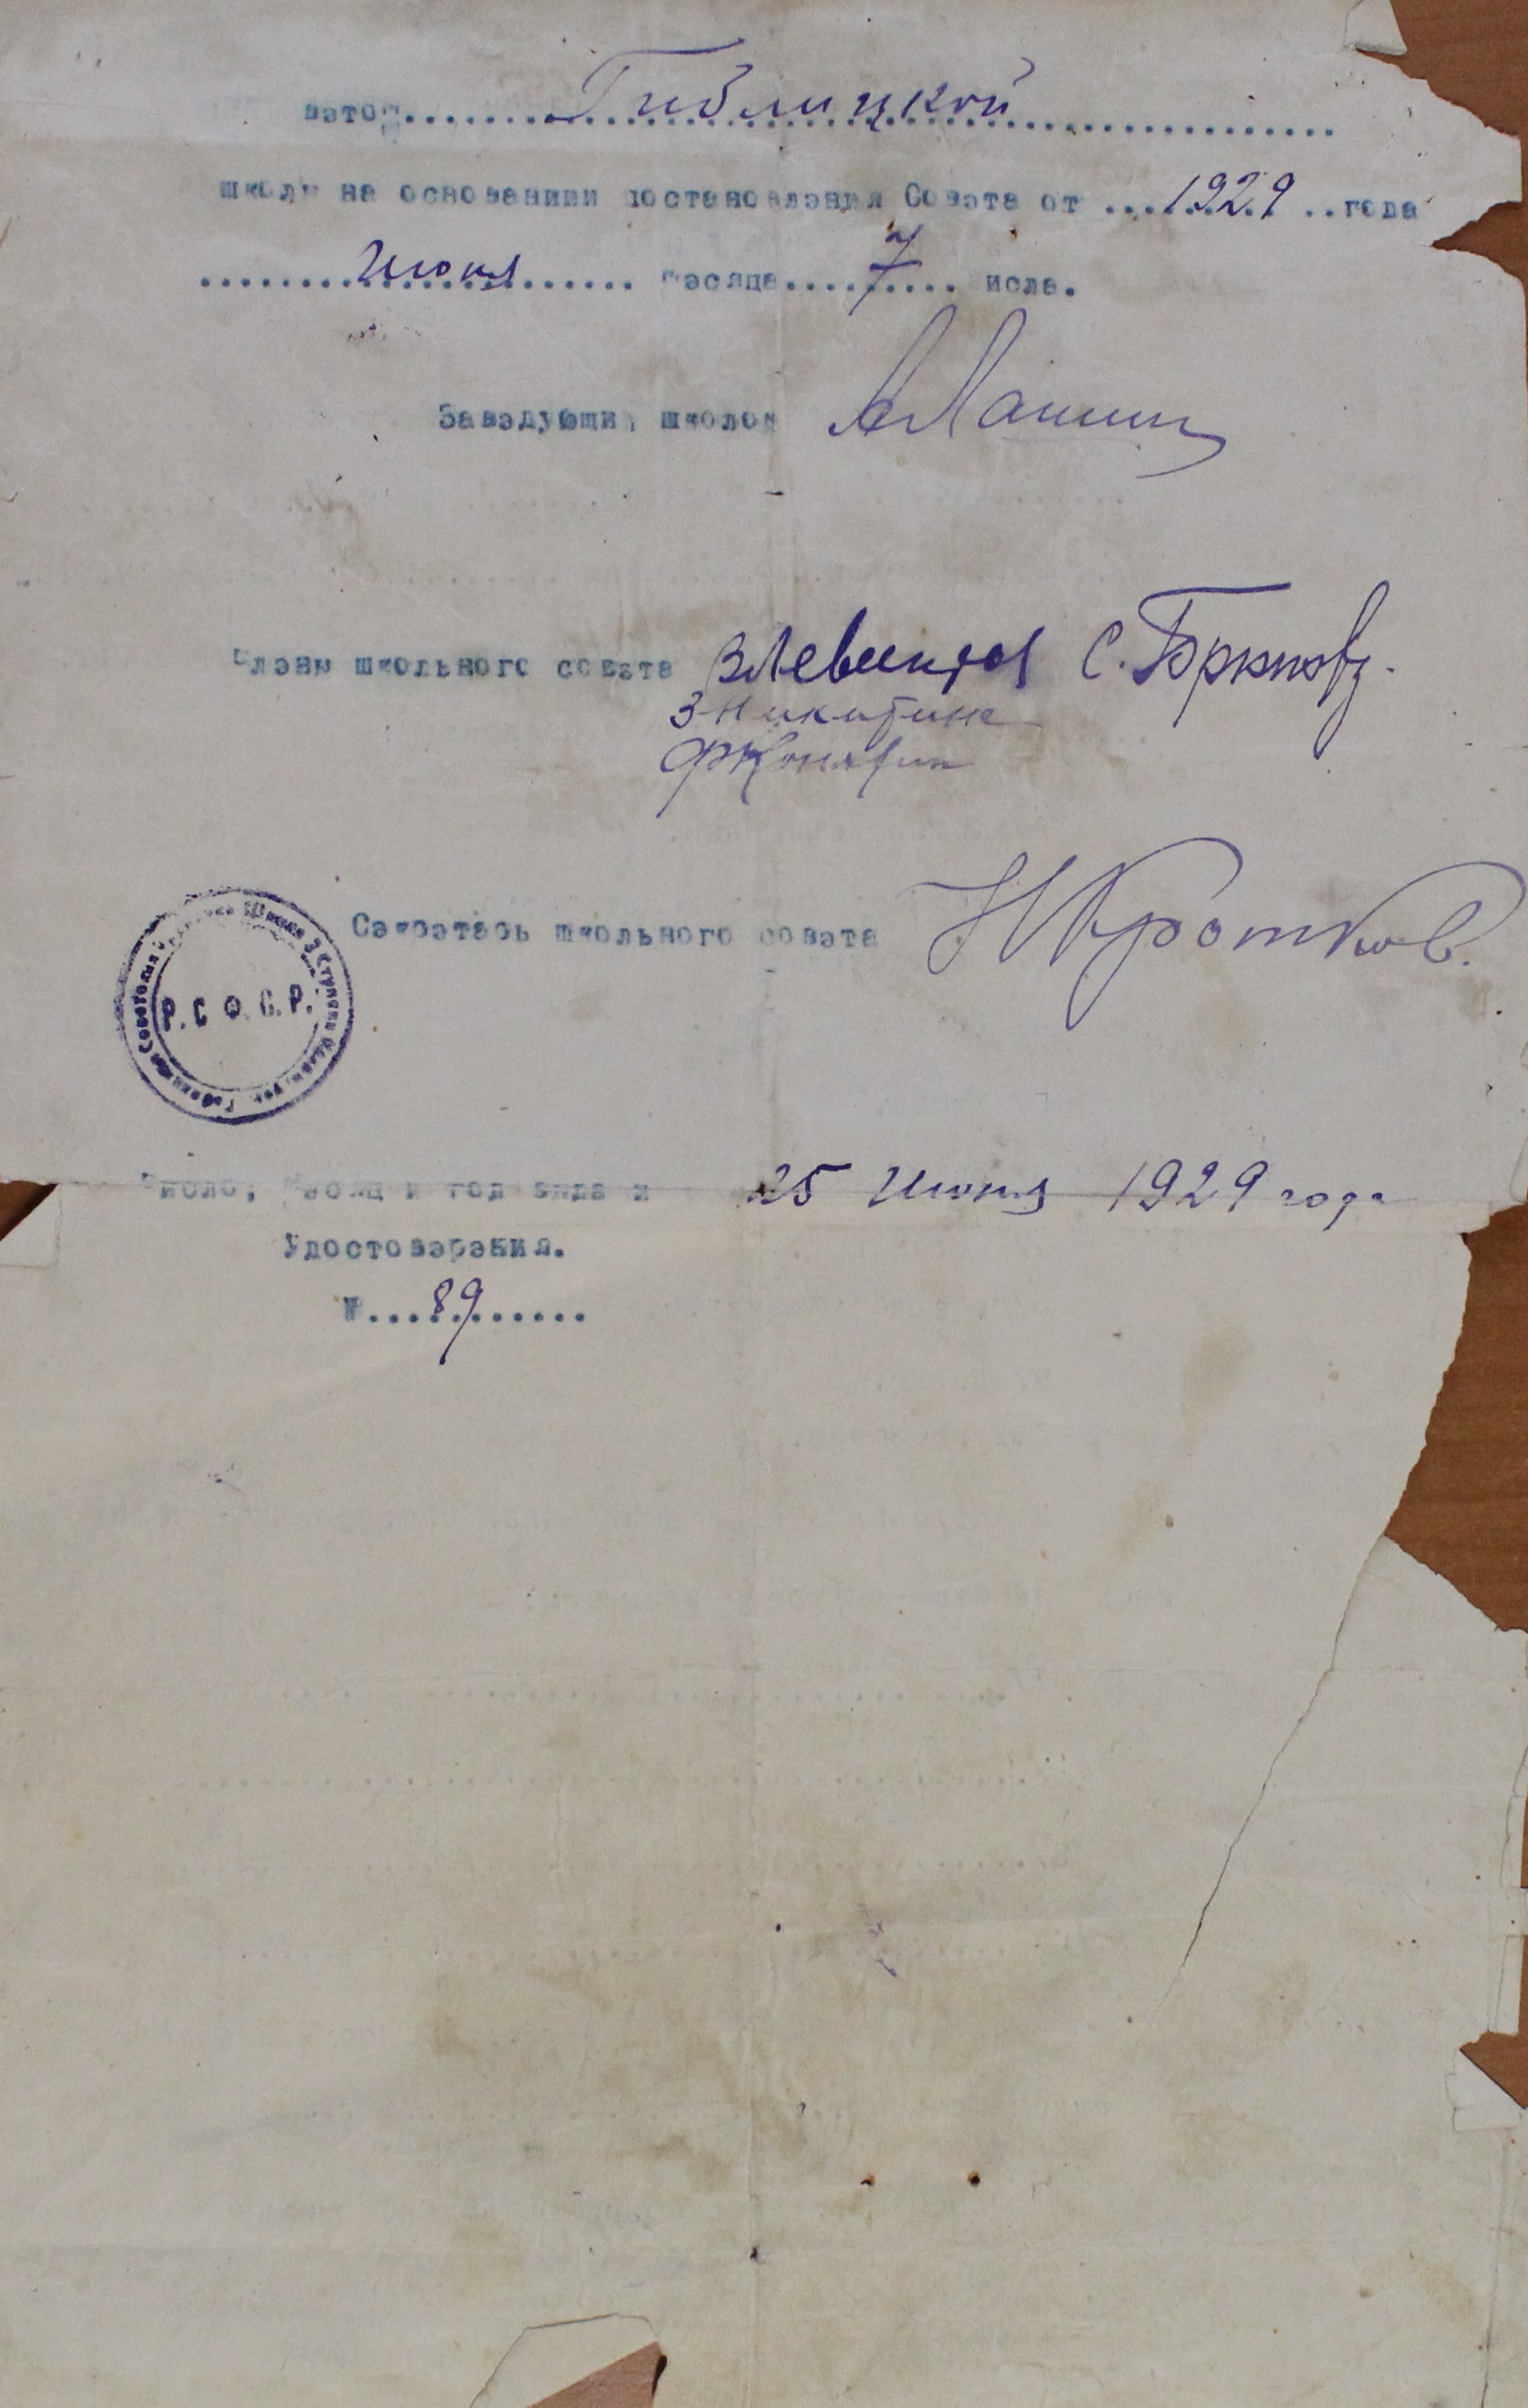 ветом..........Гиблицкой..........
школы на основаниии постановления Совета от ....1929 ..года
.......Июня....... месяца....7.... исла.
Заведующий школой АЛанин
Члены школьного совета С.
ЗНикитина
Секретарь школьного совета НКротков.
Р.С.Ф.С.Р.
Число, месяц и год выда и 25 Июня 1929 года
Удостоверения.
№...89......